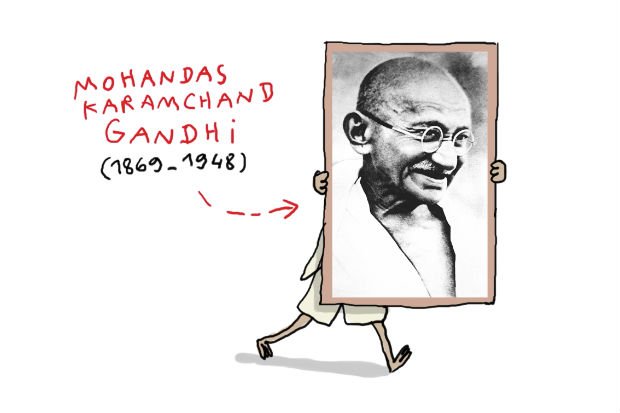 MOHANDAS
KARAMCHAND
GANDHi
(1869_1948)